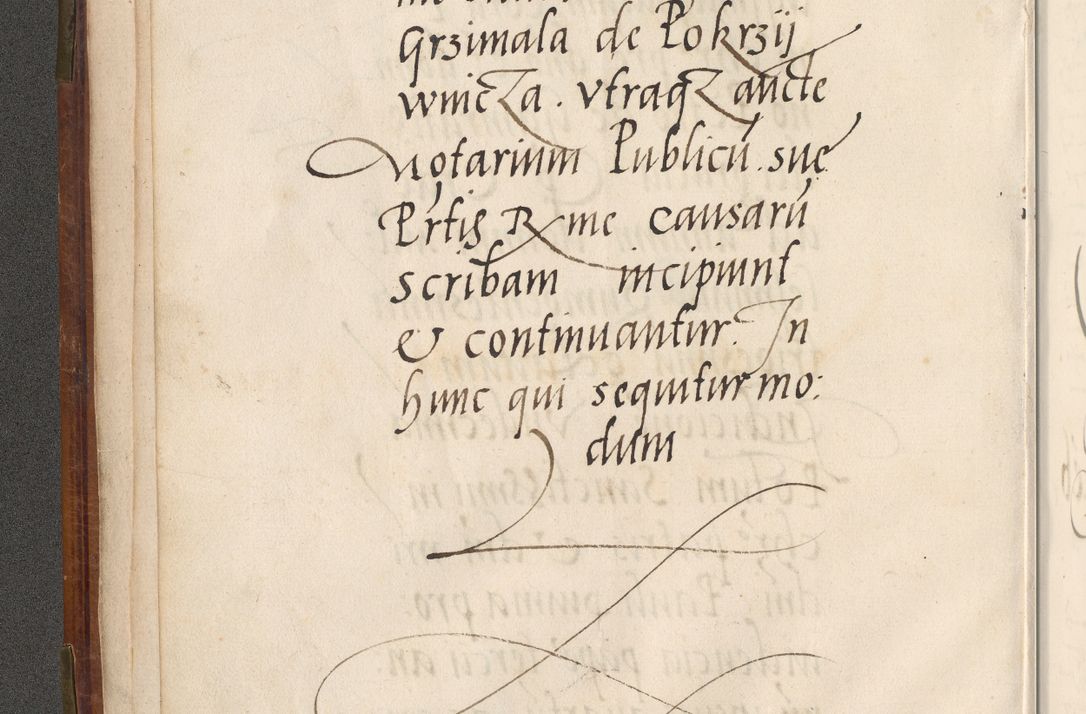 Grzimala de Pokrzij
wnicza. vtraqȝ aucte
Notarium Publicũ. sue
Prtis R me causarũ
scribam incipiunt
& continuantur. In
hunc qui sequitur mo:
dum